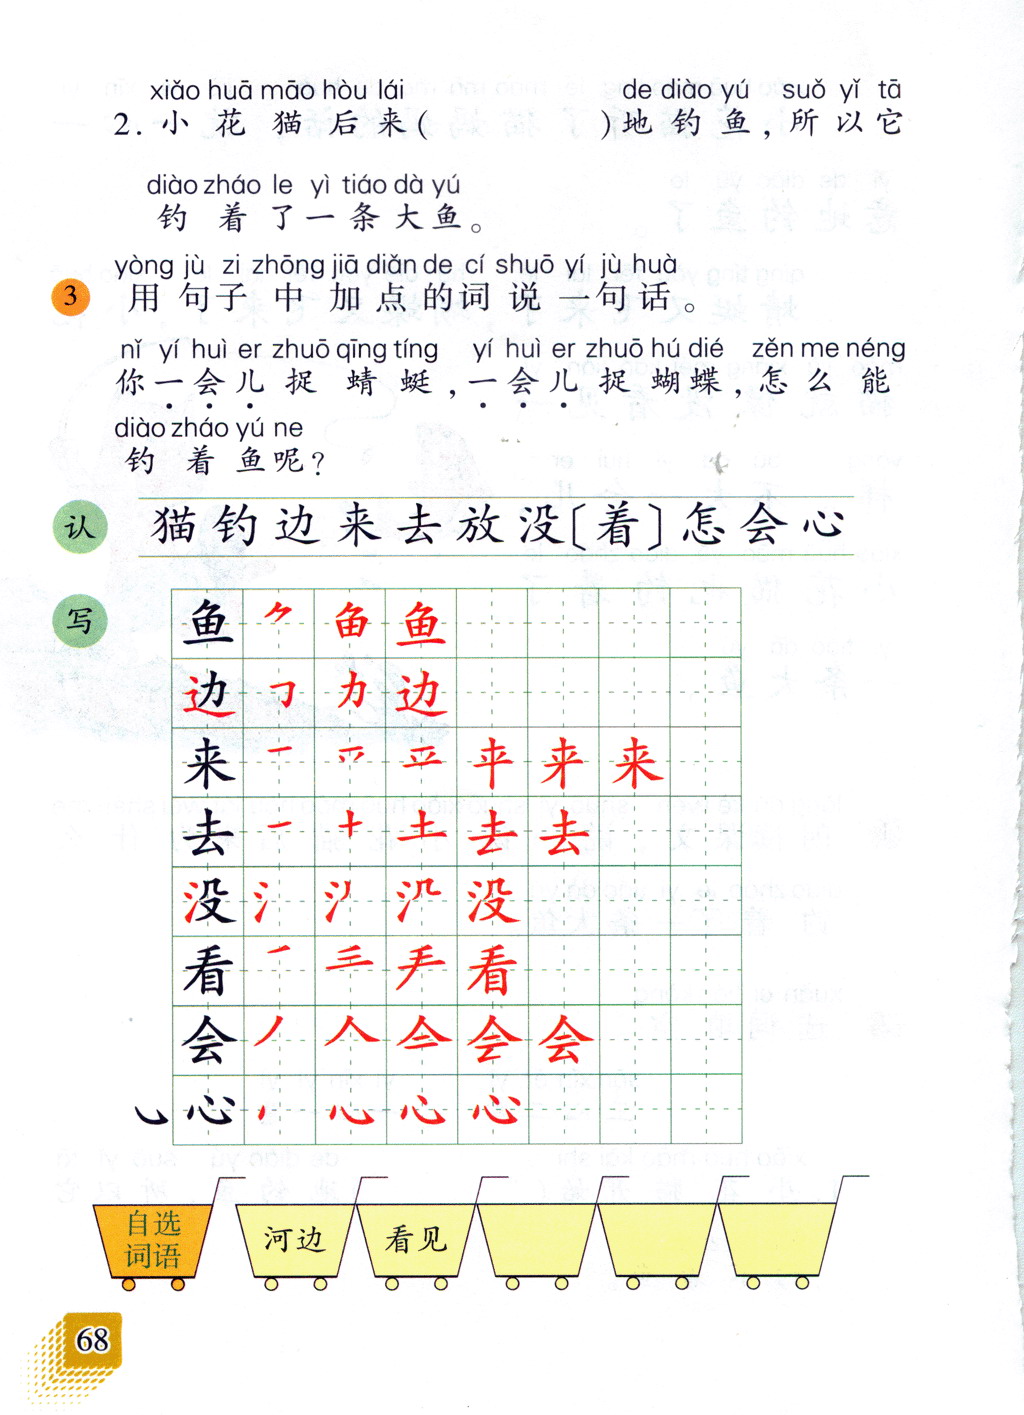 xiǎo huā māo hòu lái de diào yú suǒ yǐ tā
2. 小花猫后来( )地钓鱼,所以它
diào zháo le yì tiáo dà yú
钓着了一条大鱼。
yòng jù zi zhōng jiā diǎn de cí shuō yí jù huà
3 用句子中加点的词说一句话。
nǐ yí huì er zhuō qīng tíng yí huì er zhuō hú dié zěn me néng
你一会儿捉蜻蜓,一会儿捉蝴蝶,怎么能
diào zháo yú ne
钓着鱼呢?
认 猫钓边来去放没〔着〕怎会心
写
鱼 𠂊 鱼 鱼
边 ㇆ 力 边
来 一 来 来
去 一 十 土 去 去
没 氵 没
看 一 三 龵 看
会 丿 人 亼 会 会
㇃ 心 心 心 心
自选词语 河边 看见
68